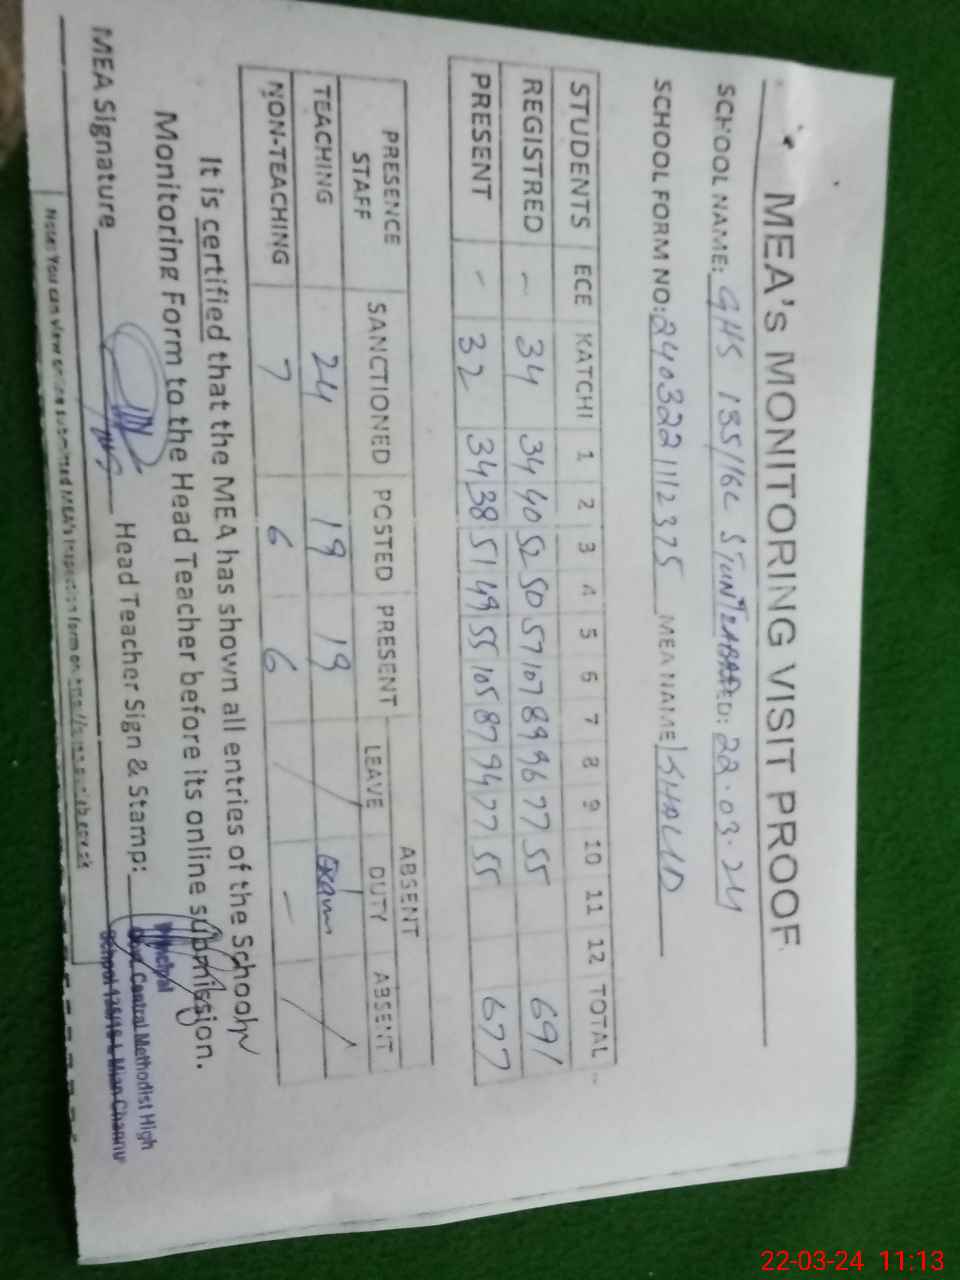 MEA'S MONITORING VISIT PROOF
SCHOOL NAME: GHS 135/16L DATED: 22.03.24
SCHOOL FORM NO: 2403221112375 MEA NAME KHALID
STUDENTS ECE KATCHI 1 2 3 4 5 6 7 8 9 10 11 12 TOTAL
REGISTRED - 34 34 40 52 50 57 107 89 96 77 55 691
PRESENT - 32 34 38 51 49 55 105 87 94 77 55 677
PRESENCE STAFF SANCTIONED POSTED PRESENT ABSENT
LEAVE DUTY ABSENT
TEACHING 24 19 19 / Exam /
NON-TEACHING 7 6 6 / - /
It is certified that the MEA has shown all entries of the School
Monitoring Form to the Head Teacher before its online submission.
MEA Signature Head Teacher Sign & Stamp:
Principal
Govt. Central Methodist High
School 135/16-L Mian Channu
Note: You can view online submitted MEA's Inspection form on
22-03-24 11:13